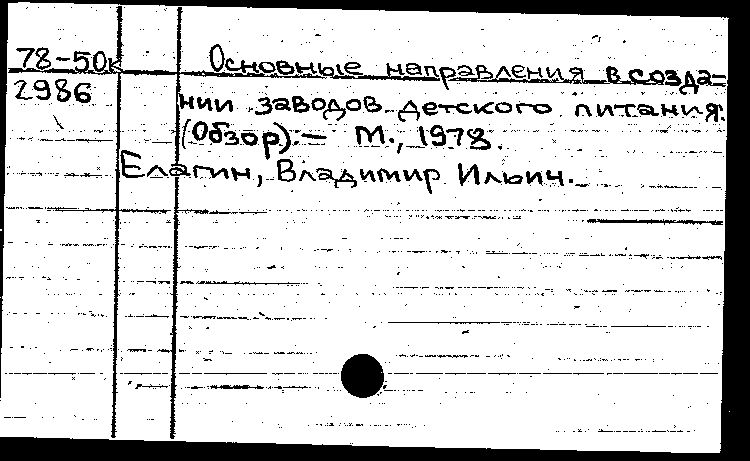 78-50к Основные направления в созда-
2986 нии заводов детского питания.
(Обзор).— М., 1978.
Елагин, Владимир Ильич.